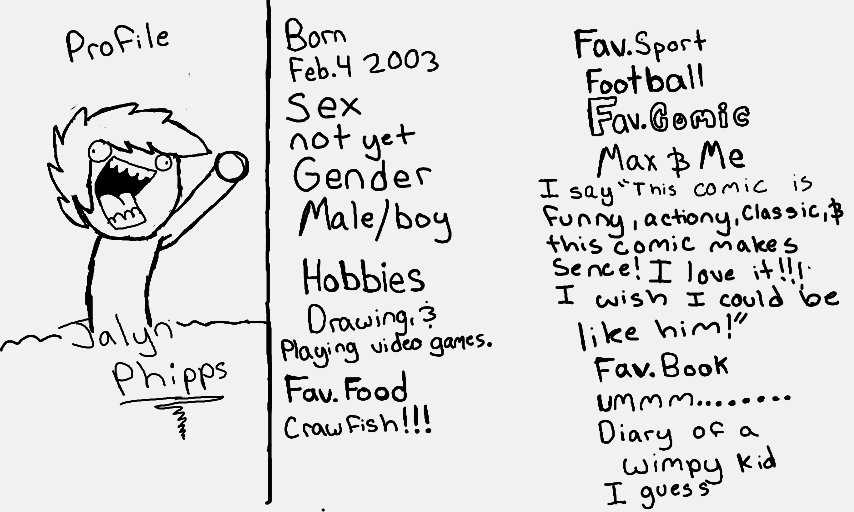 Profile
Jalyn
Phipps
Born
Feb.4 2003
Sex
not yet
Gender
Male/boy
Hobbies
Drawing, &
Playing video games.
Fav.Food
Crawfish!!!
Fav.Sport
Football
Fav.Comic
Max & Me
I say "This comic is
funny, actiony, Classic, &
this comic makes
Sence! I love it!!!
I wish I could be
like him!"
Fav.Book
ummm........
Diary of a
wimpy kid
I guess